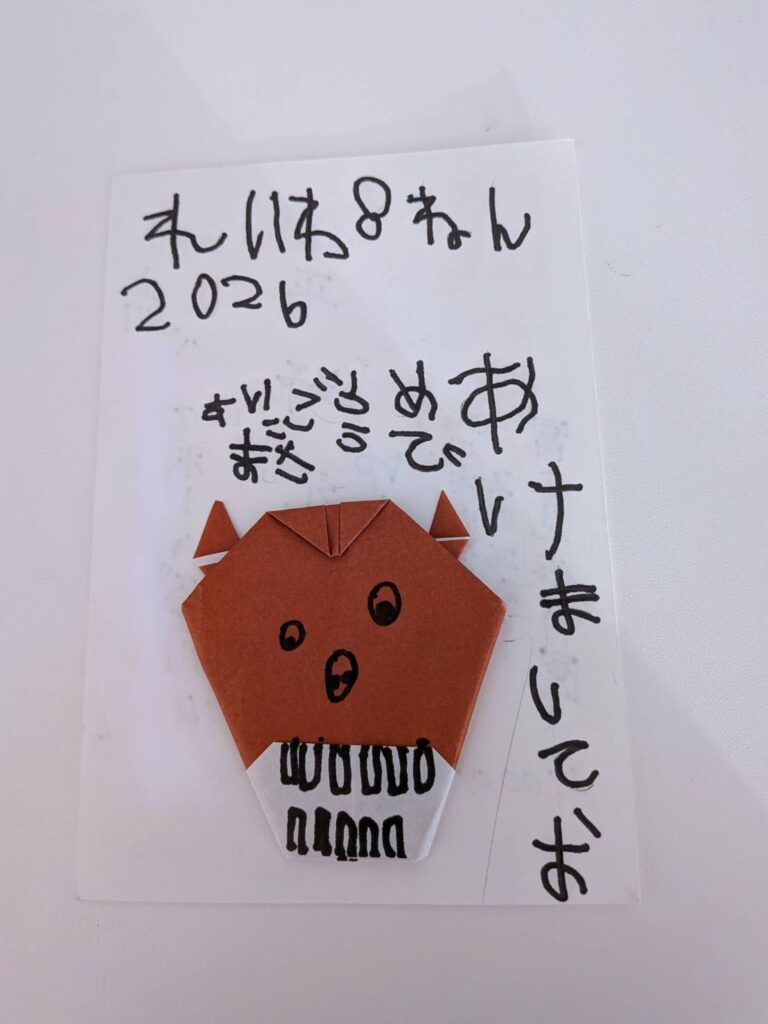 れいわ8ねん
2026
あけましてお
めで
とう
ござ
いま
す